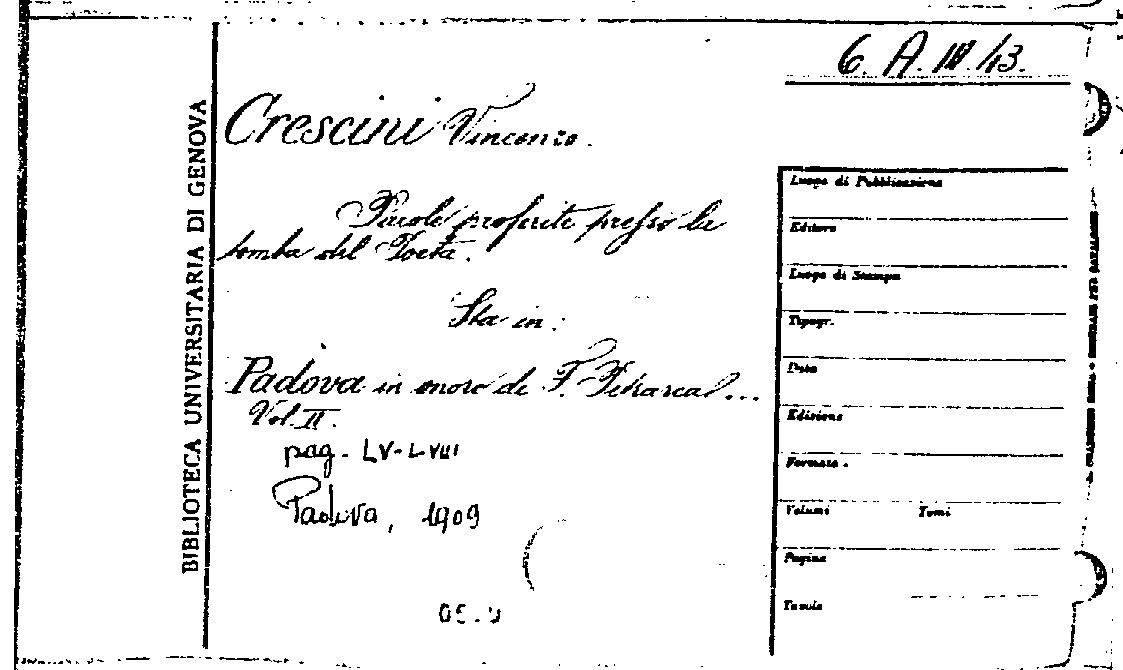 6. A. III. /13.
BIBLIOTECA UNIVERSITARIA DI GENOVA
Crescini Vincenzo.
Parole proferite presso la
tomba del Poeta.
Sta in:
Padova in onore di F. Petrarca ...
Vol. II.
pag. LV-LVIII
Padova, 1909
Luogo di Pubblicazione
Editore
Luogo di Stampa
Tipogr.
Data
Edizione
Formato.
Volumi Tomi
Pagine
Tavole